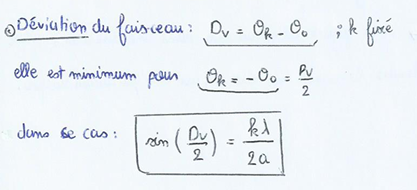 c) Déviation du faisceau : Dv = θk - θ0 ; k fixé
elle est minimum pour θk = -θ0 = Dv/2
dans ce cas : sin(Dv/2) = kλ/2a